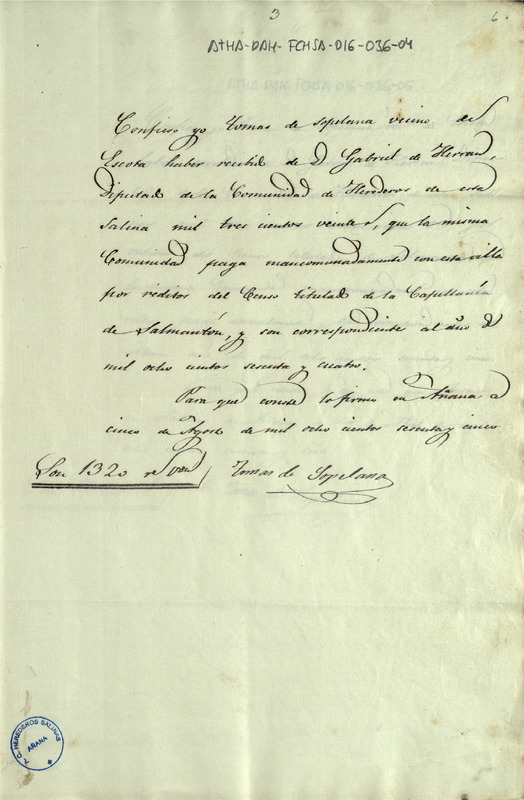 3
6
ATHA-DAH-FCHSA-016-036-04
Confieso yo Tomas de Sopelana vecino de
Escota haber recibido de D Gabriel de Herran,
Diputado de la Comunidad de Herederos de esta
Salina mil tres cientos veinte r, que la misma
Comunidad paga mancomunadamente con esta villa
por reditos del Censo titulado de la Capellanía
de Salmantón, y son correspondiente al año d
mil ocho cientos sesenta y cuatro.
Para que conste lo firmo en Añana a
cinco de Agosto de mil ocho cientos sesenta y cinco
Son 1320 r von
Tomas de Sopelana
C. HEREDEROS SALINAS
AÑANA